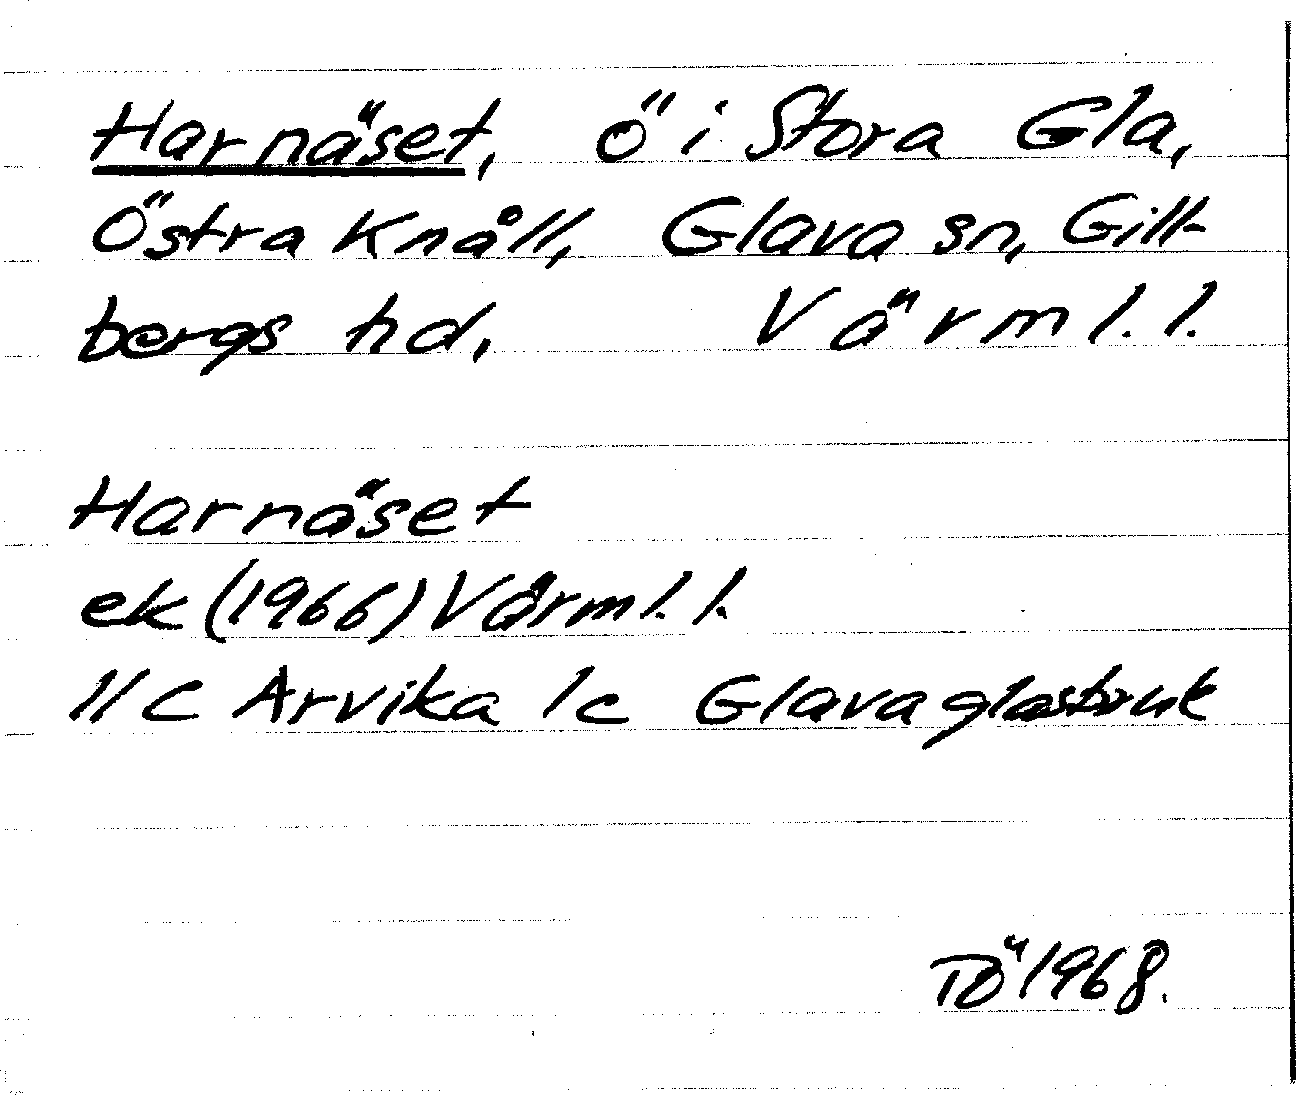 Harnäset, ö i Stora Gla,
Östra Knåll, Glava sn, Gill-
bergs hd, Värml. l.
Harnäset
ek (1966) Värml. l.
11 C Arvika 1c Glava glasbruk
TÖ 1968.